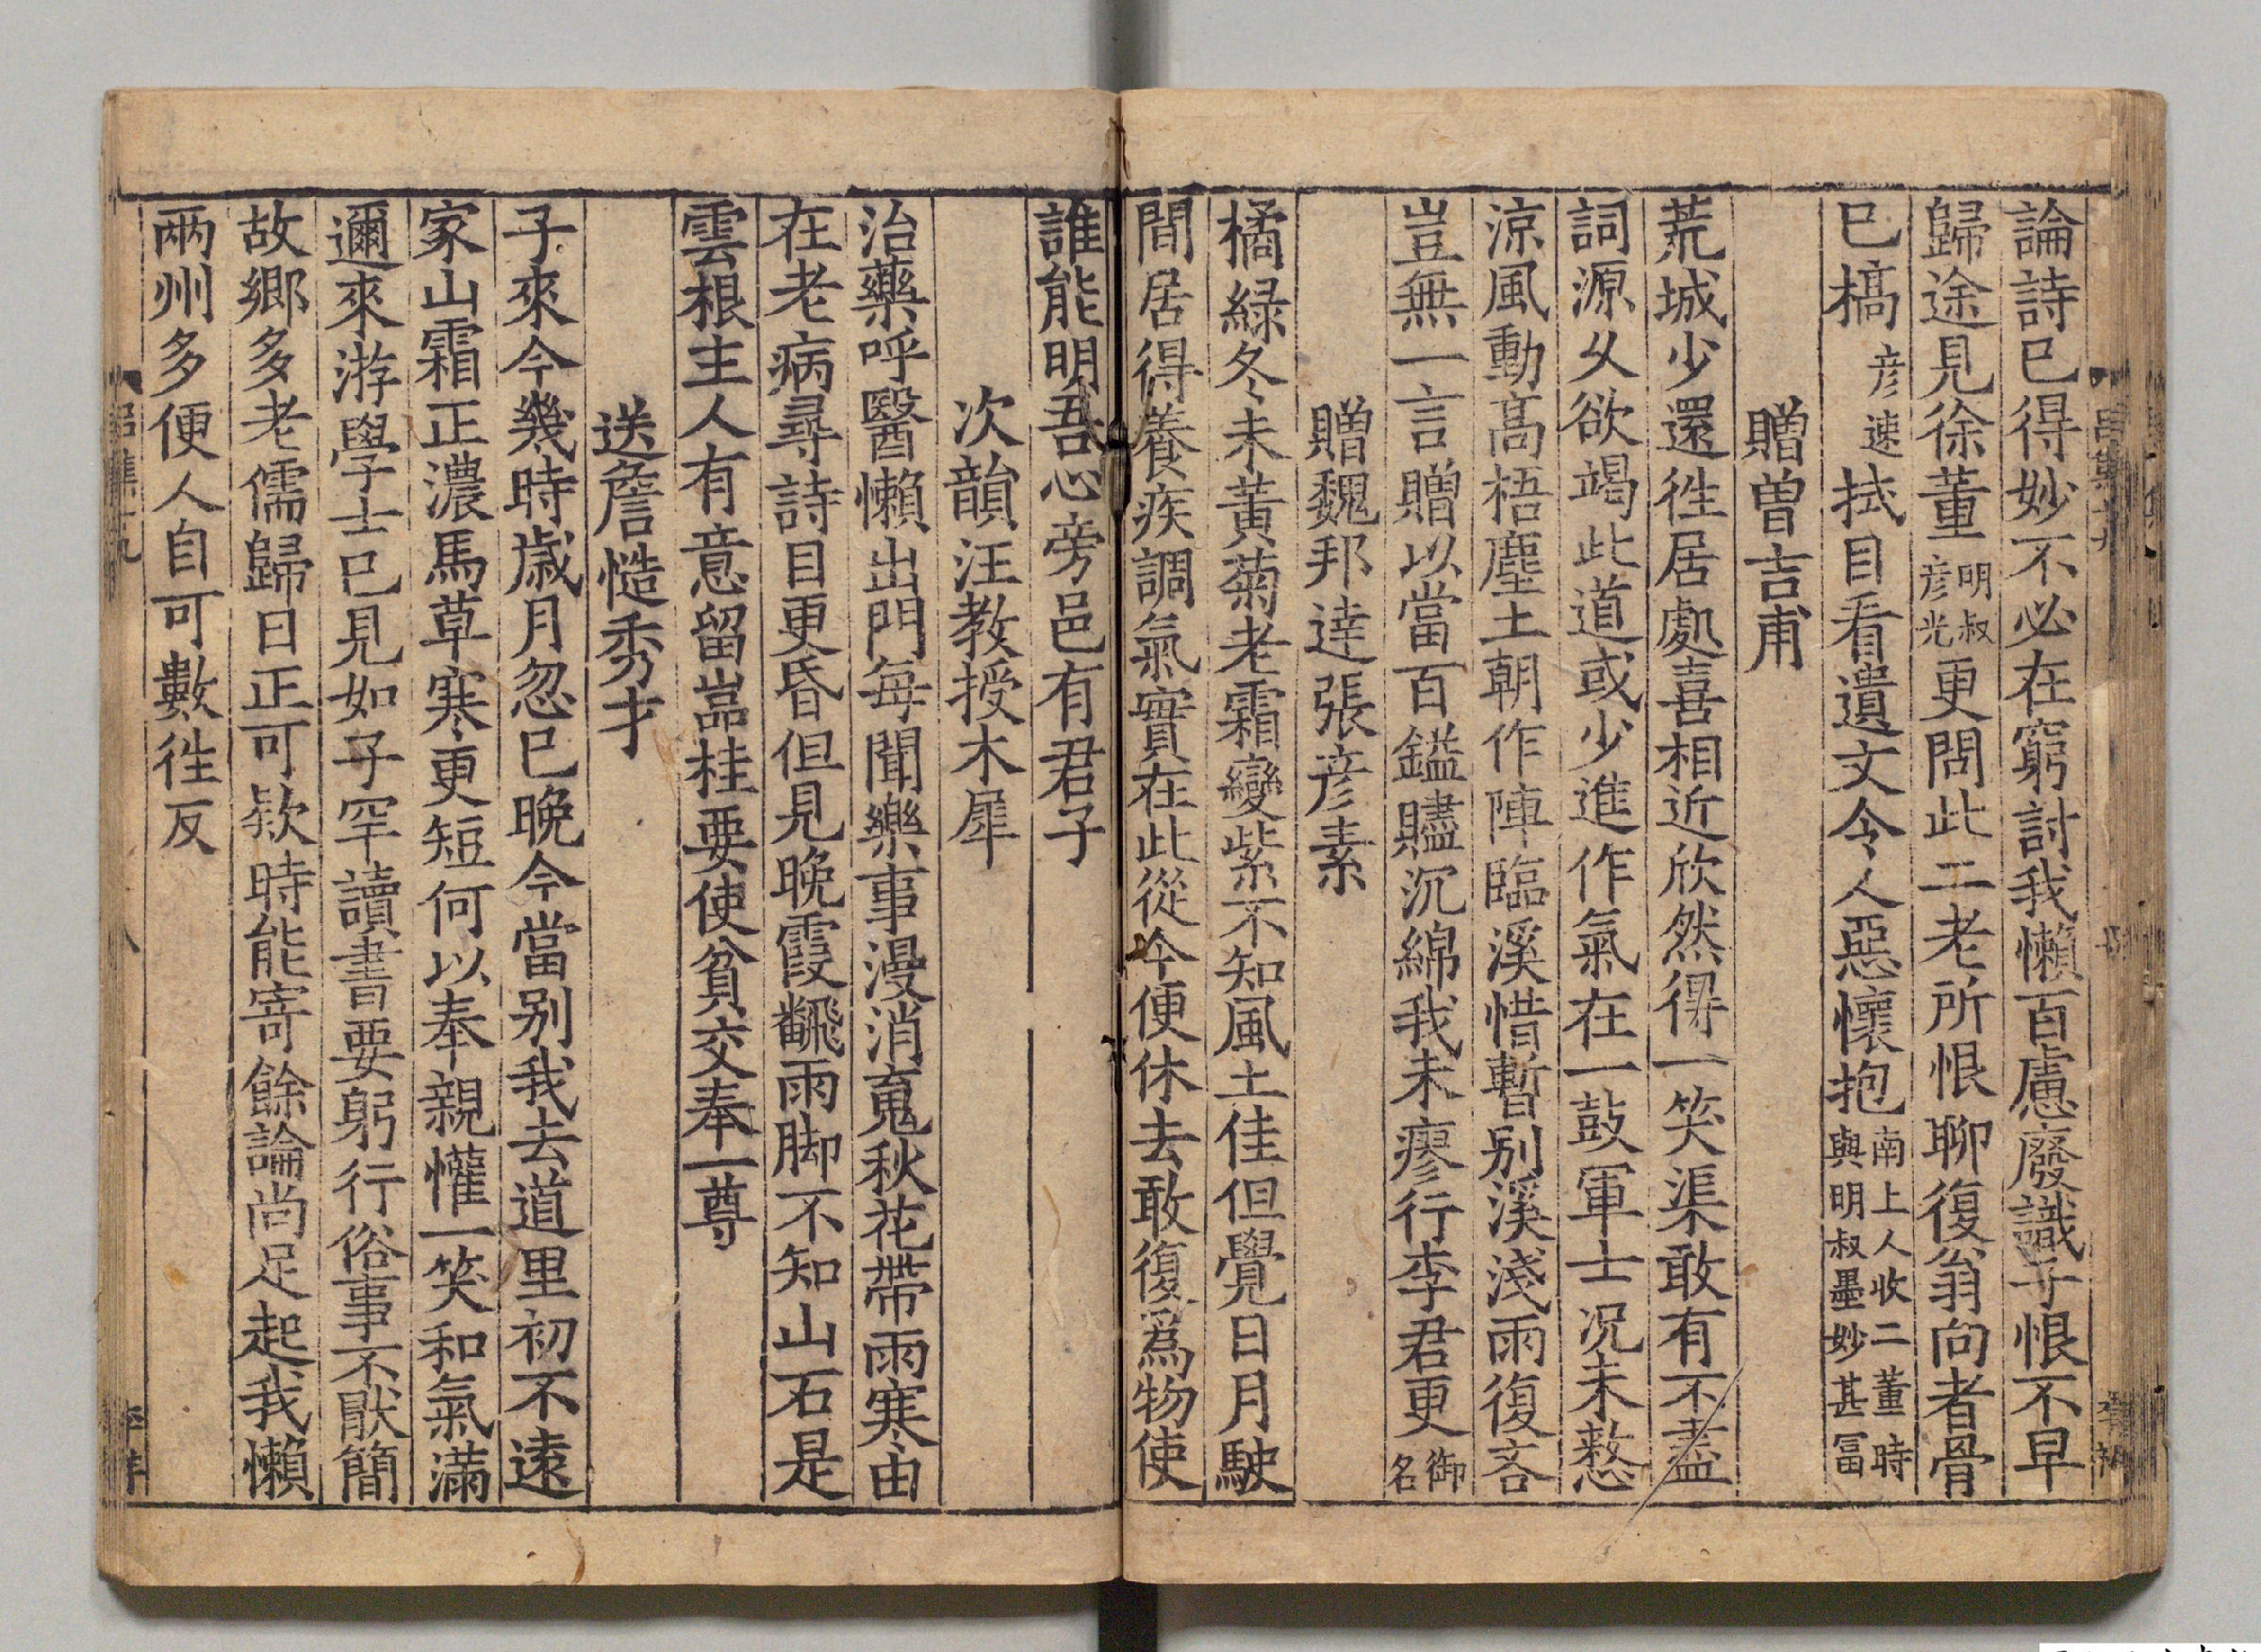 論詩已得妙不必在窮討我懶百慮廢識子恨不早
歸途見徐董明叔彥光更問此二老所恨聊復翁向者骨
已槁彥速拭目看遺文令人惡懷抱南上人收二董時與明叔墨妙甚冨
贈曽吉甫
荒城少還徃居處喜相近欣然得一笑渠敢有不盡
詞源乆欲竭此道或少進作氣在一鼓軍士况未憗
涼風動髙梧塵土朝作陣臨溪惜暫别溪淺雨復吝
豈無一言贈以當百鎰贐沉綿我未瘳行李君更御名
贈魏邦逹張彥素
橘緑冬未黄菊老霜變紫不知風土佳但覺日月駛
間居得養疾調氣實在此從今便休去敢復爲物使
誰能明吾心旁邑有君子
次韻汪教授木犀
治藥呼醫懶出門每聞樂事漫消䰟秋花帶雨寒由
在老病尋詩目更昏但見晚霞飜雨脚不知山石是
雲根主人有意留嵓桂要使貧交奉一尊
送詹慥秀才
子來今幾時歲月忽已晚今當别我去道里初不逺
家山霜正濃馬草寒更短何以奉親懽一笑和氣滿
邇來游學士已見如子罕讀書要躬行俗事不猒簡
故鄉多老儒歸日正可欵時能寄餘論尚足起我懶
兩州多便人自可數徃反